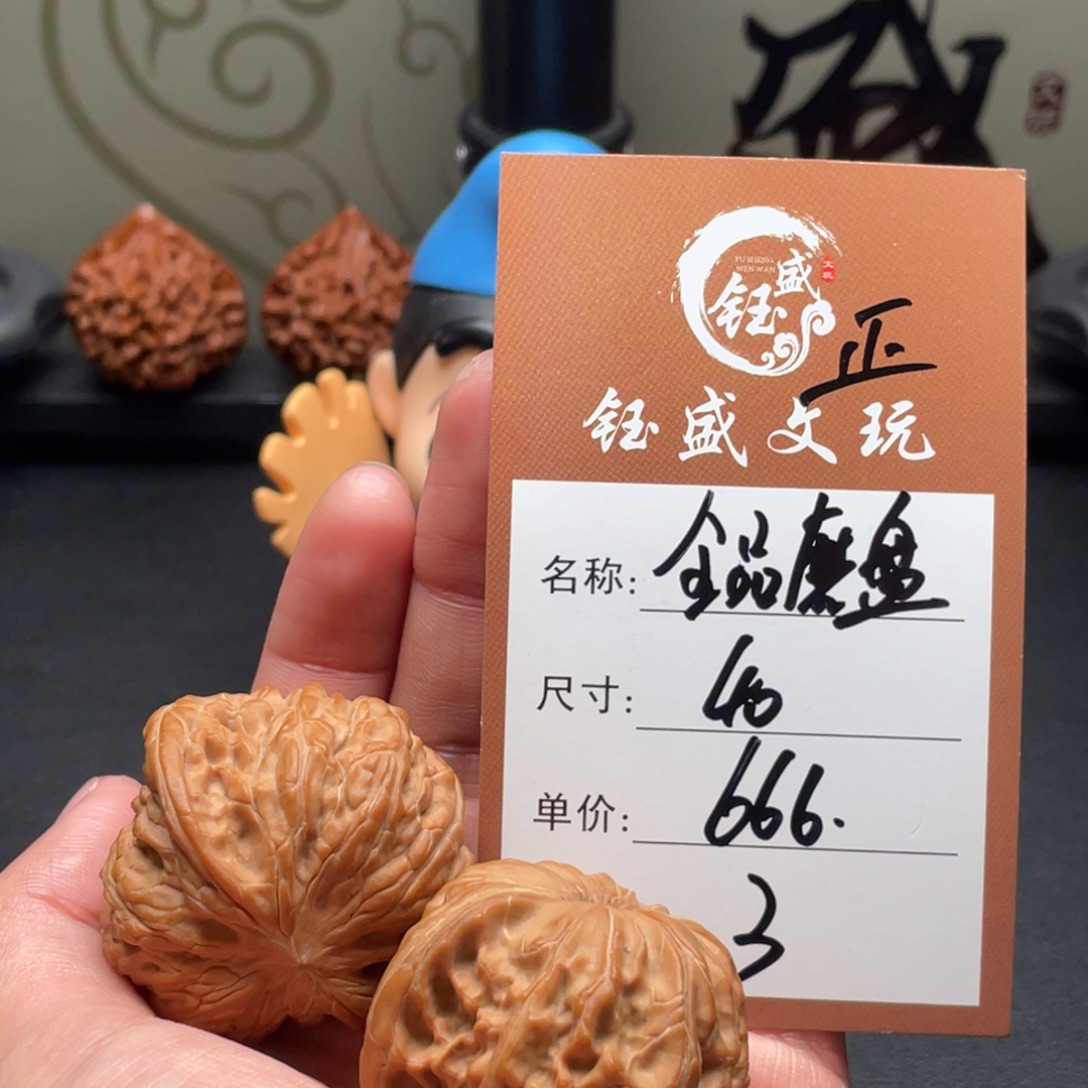 YU SHENG
WEN WAN
钰盛
文玩
正
钰盛文玩
名称: 全品磨盘
尺寸: 40
单价: 666.
3